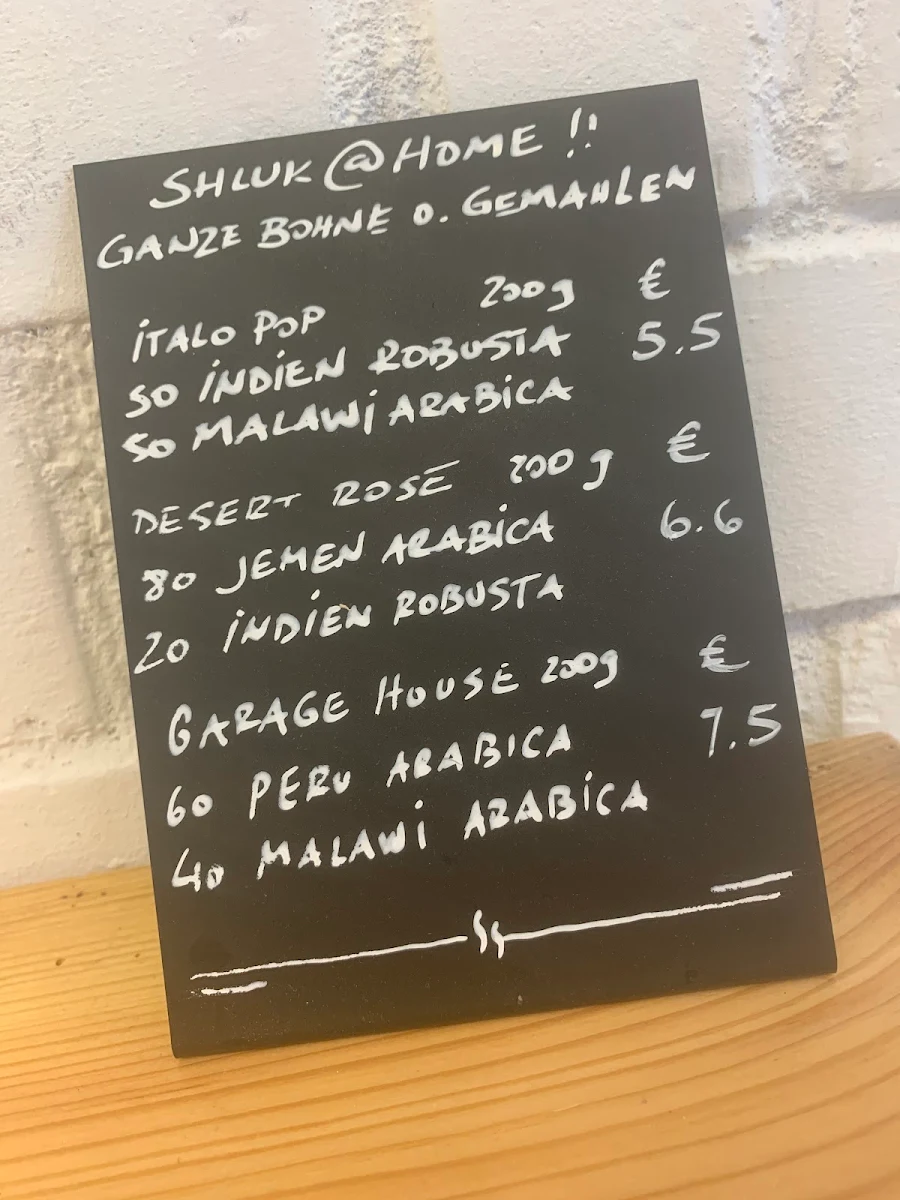 SHLUK @ HOME !!
GANZE BOHNE O. GEMAHLEN
ITALO POP 200g €
50 INDIEN ROBUSTA 5.5
50 MALAWI ARABICA
DESERT ROSE 200g €
80 JEMEN ARABICA 6.6
20 INDIEN ROBUSTA
GARAGE HOUSE 200g €
60 PERU ARABICA 7.5
40 MALAWI ARABICA